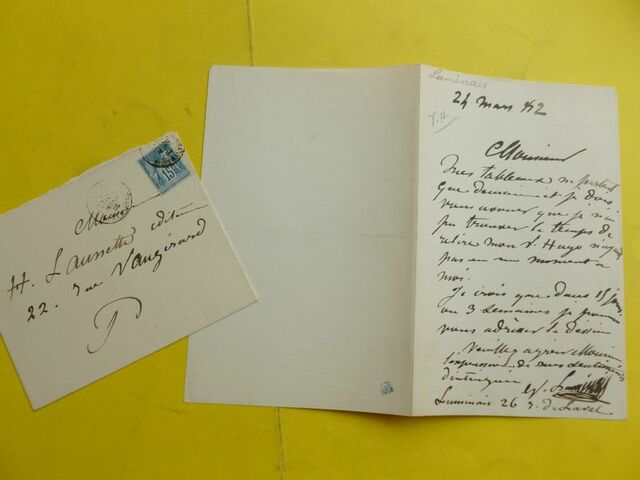 Luminais
24 mars 82
V. H
Monsieur
Mes tableaux ne partent
que demain et je dois
vous avouer que je n'ai
pu trouver le temps de
relire mon V. Hugo n'ayant
pas eu un moment a
moi.
Je crois que dans 15 jours
ou 3 semaines je pourrai
vous adresser le dessin
Veuillez agréer Monsieur
l'expression de mes sentiments
distingués
Ev. Luminais
Luminais 26 r. de Laval
15
Monsieur
H. Launette editeur
22. rue Vaugirard